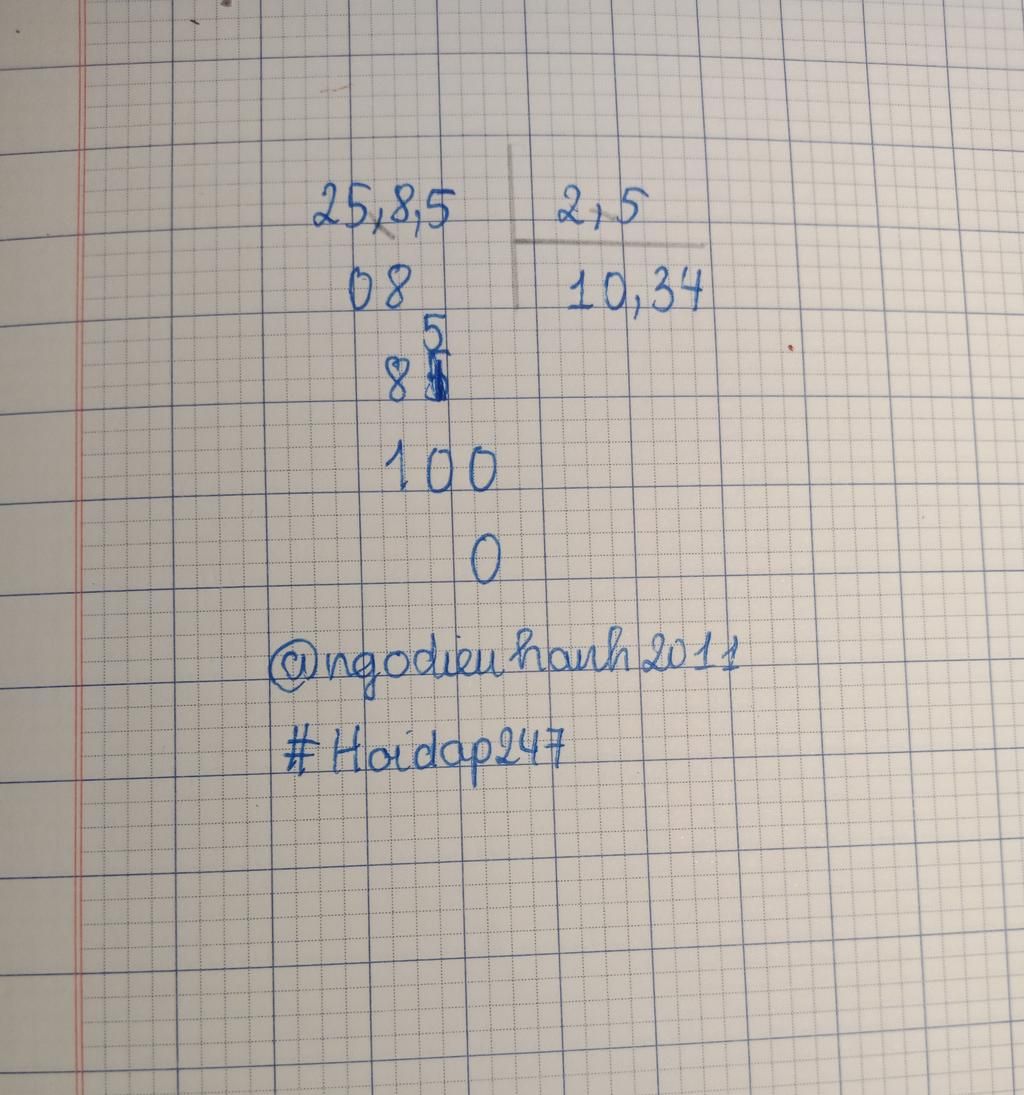 25,8,5 2,5
08 10,34
5
8
100
0
@ngodieuhanh2011
#Hoidap247